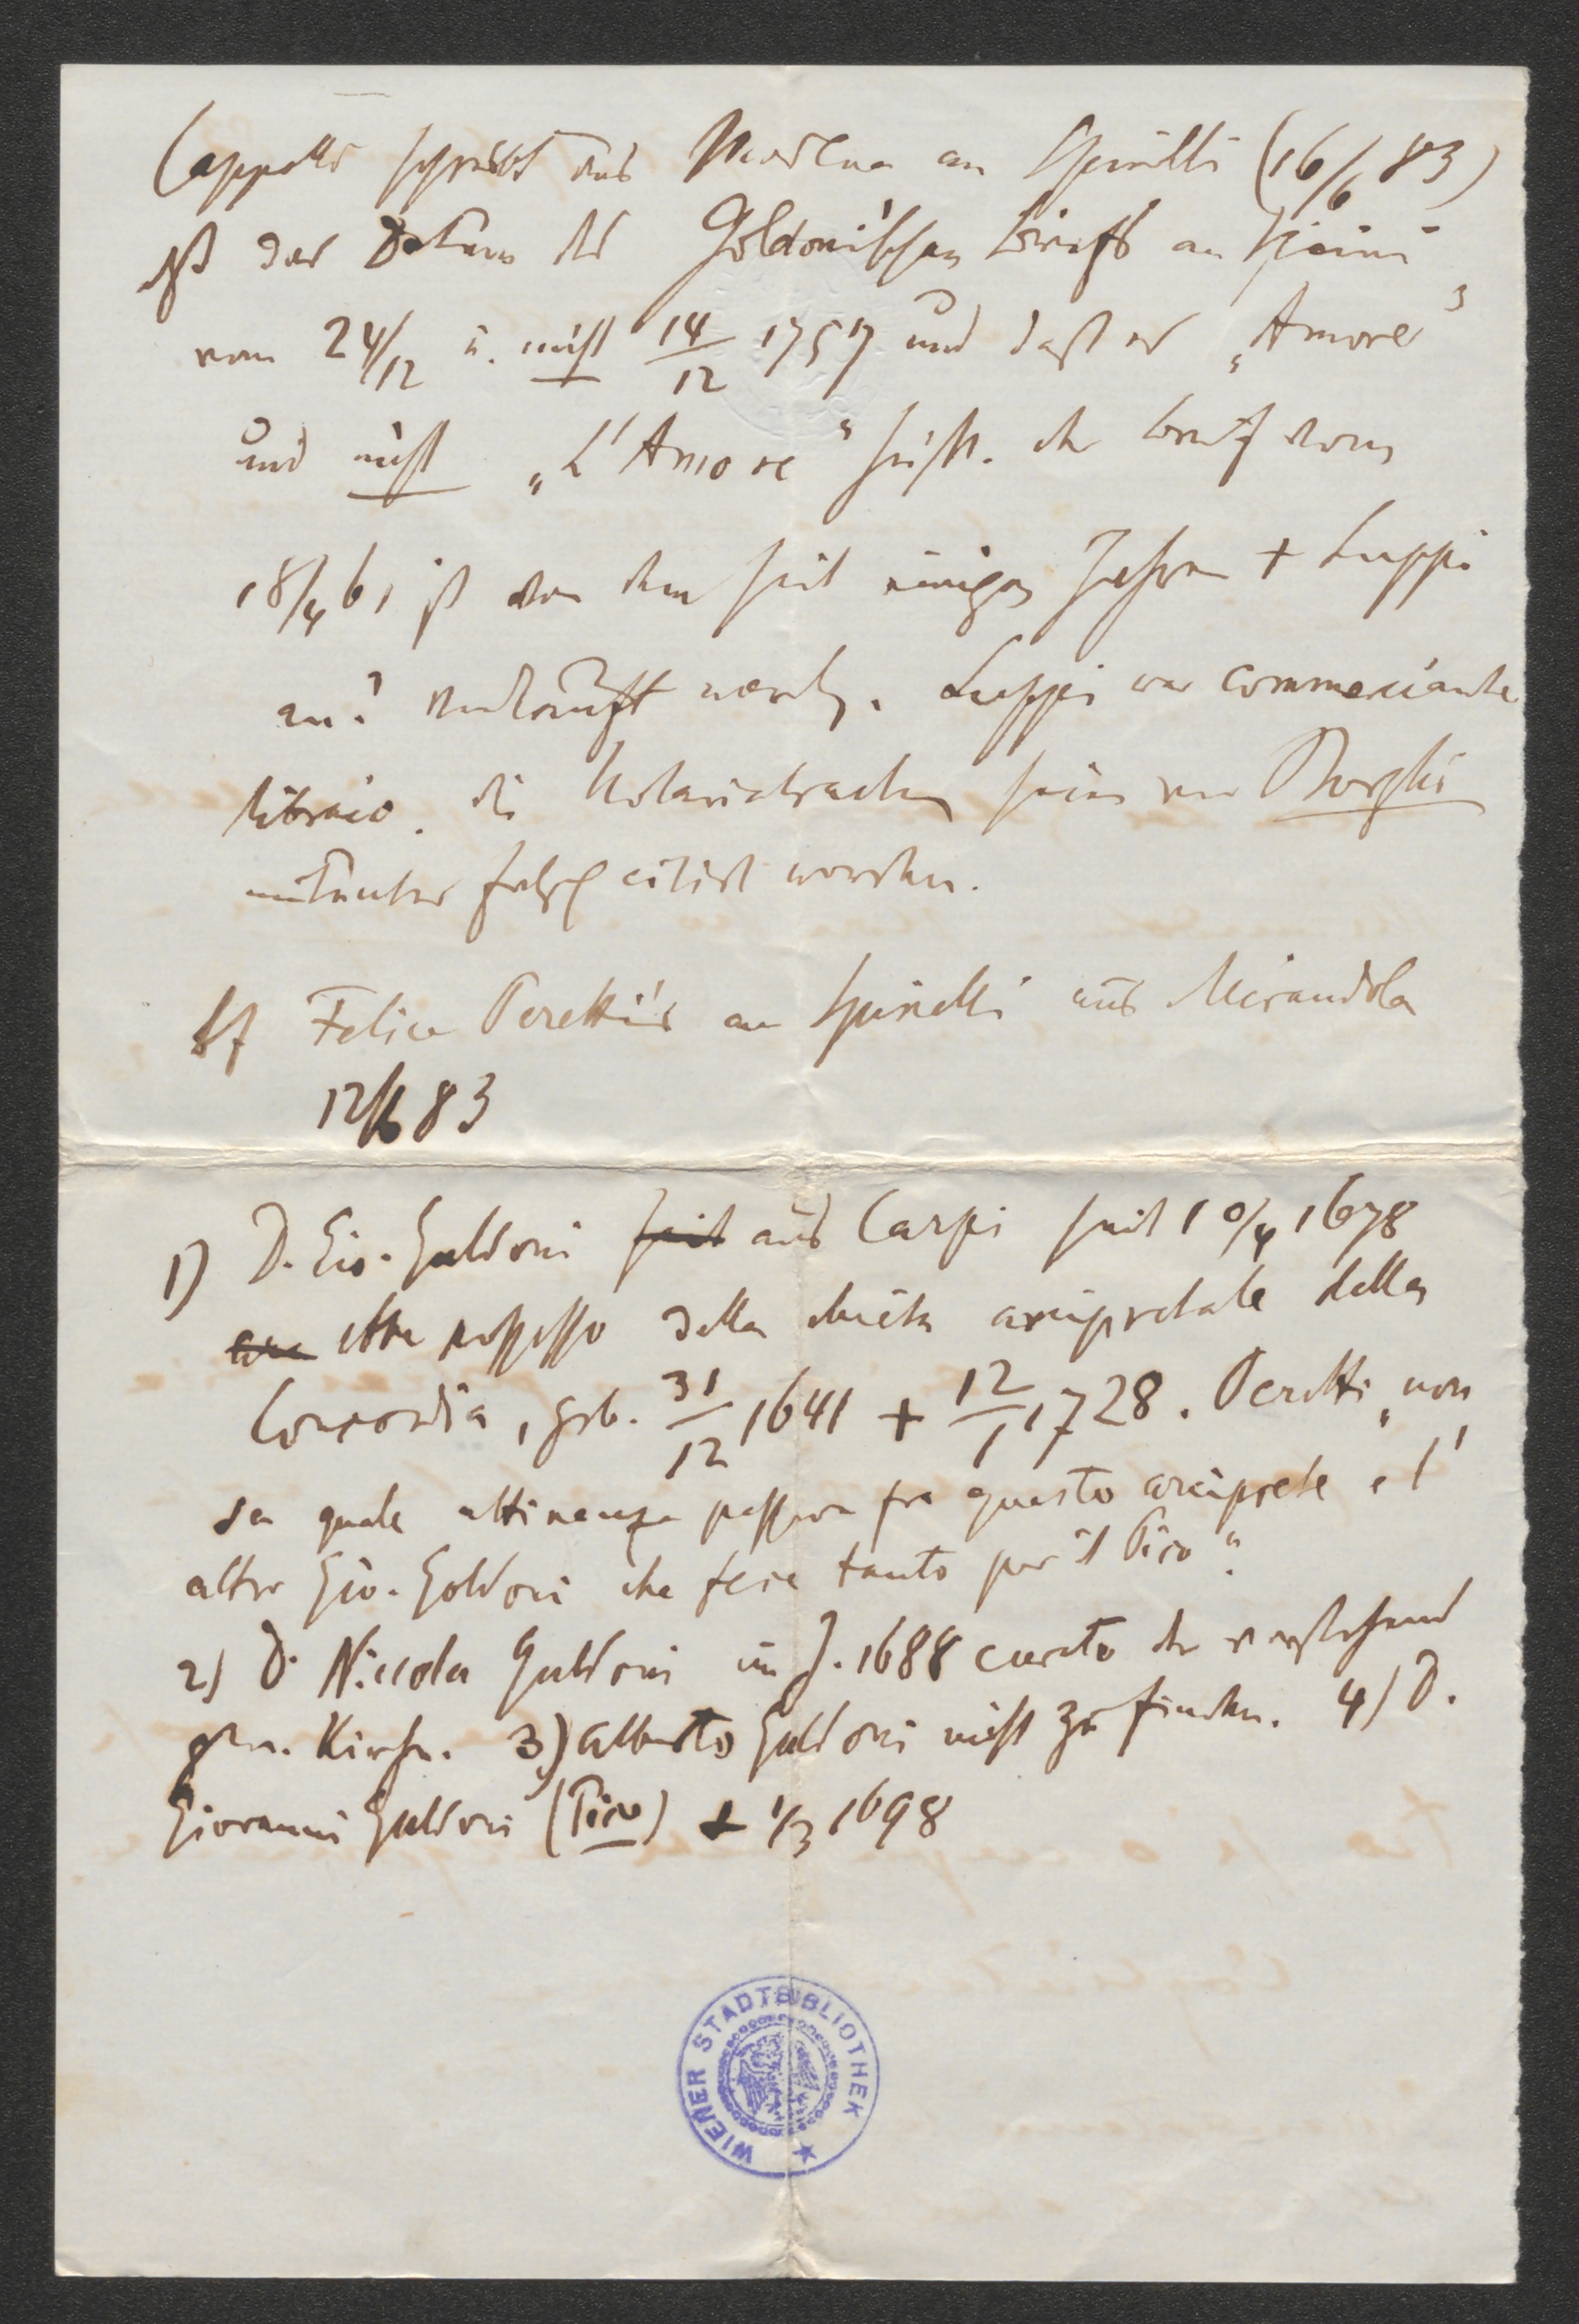 Cappelli schreibt aus Modena an Spinelli (16/6 83)
daß das Datum des Goldonischen Briefs an
vom 24/12 u. nicht 14/12 1757 und daß es „Amore"
und nicht „L'Amore" heißt. der Brief vom
18/4 61 ist von dem seit einigen Jahren + Luppi
an? verkauft worden. Luppi war commerciante
libraio. die Notariatsachen seien von Borghi
mitunter falsch citirt worden.
Bf Felice Ceretti's an Spinelli aus Mirandola
12/6 83
1) D. Gio. Guldoni seit aus Carpi seit 10/4 1678
ebbe possesso della chiesa arcipretale della
Concordia, geb. 31/12 1641 + 12/1 1728. Ceretti „non
sa quale attinenza passava fra questo arciprete e l'
altro Gio. Goldoni che fece tanto per il Pico".
2) D. Niccola Guldoni im J. 1688 curato der vorstehend
gen. Kirche. 3) Alberto Guldoni nicht zu finden. 4) D.
Giovanni Guldoni (Pico) + 1/3 1698
WIENER STADTBIBLIOTHEK